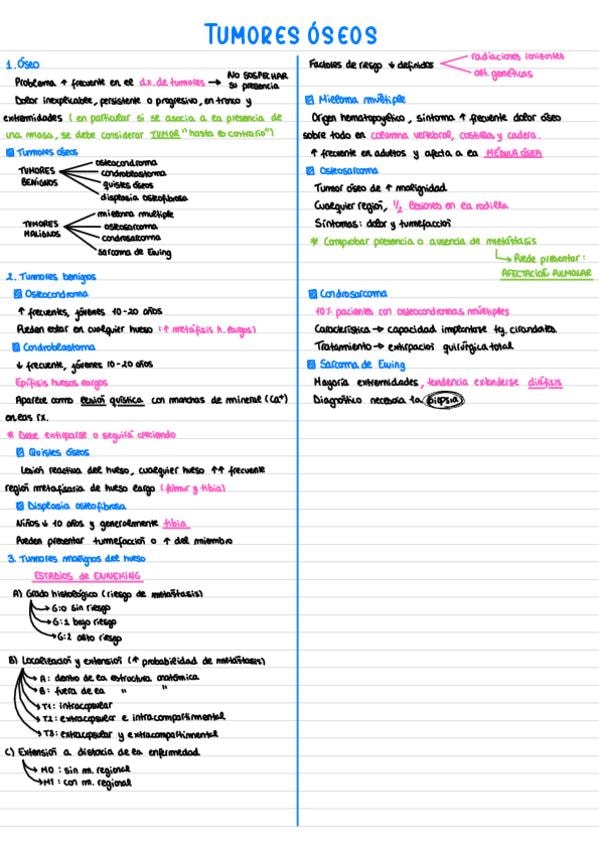 TUMORES ÓSEOS
1. Óseo
Problema ↑ frecuente en el dx. de tumores → NO SOSPECHAR su presencia
Dolor inexplicable, persistente o progresivo, en tronco y
extremidades (en particular si se asocia a la presencia de
una masa, se debe considerar TUMOR "hasta lo contrario")
Tumores óseos
TUMORES BENIGNOS
osteocondroma
condroblastoma
quistes óseos
displasia osteofibrosa
TUMORES MALIGNOS
mieloma multiple
osteosarcoma
condrosarcoma
sarcoma de Ewing
2. Tumores benignos
Osteocondroma
↑ frecuentes, jóvenes 10-20 años
Pueden estar en cualquier hueso (↑ metáfisis h. largos)
Condroblastoma
↓ frecuente, jóvenes 10-20 años
Epífisis huesos largos
Aparece como lesión quística con manchas de mineral (Ca⁺)
en las rx.
* Debe extirparse o seguirá creciendo
Quistes óseos
Lesión reactiva del hueso, cualquier hueso ↑↑ frecuente
región metafisaria de hueso largo (fémur y tibia)
Displasia osteofibrosa
Niños ↓ 10 años y generalmente tibia
Pueden presentar tumefacción o ↑ del miembro
3. Tumores malignos del hueso
ESTADIOS de ENNEKING
A) Grado histológico (riesgo de metástasis)
G:0 sin riesgo
G:1 bajo riesgo
G:2 alto riesgo
B) Localización y extensión (↑ probabilidad de metástasis)
A: dentro de la estructura anatómica
B: fuera de la " "
T1: intracapsular
T2: extracapsular e intracompartimental
T3: extracapsular y extracompartimental
C) Extensión a distancia de la enfermedad
M0: sin m. regional
M1: con m. regional
Factores de riesgo ↓ definidos
radiaciones ionizantes
alt. genéticas
Mieloma multiple
Origen hematopoyético, síntoma ↑ frecuente dolor óseo
sobre todo en columna vertebral, costillas y cadera.
↑ frecuente en adultos y afecta a la MÉDULA ÓSEA
Osteosarcoma
Tumor óseo de ↑ malignidad
Cualquier región, 1/2 lesiones en la rodilla
Síntomas: dolor y tumefacción
* Comprobar presencia o ausencia de metástasis
Puede presentar:
AFECTACIÓN PULMONAR
Condrosarcoma
10% pacientes con osteocondromas múltiples
Característica → capacidad implantarse tj. circundantes
Tratamiento → extirpación quirúrgica total
Sarcoma de Ewing
Mayoría extremidades, tendencia extenderse diáfisis
Diagnóstico necesaria la biopsia